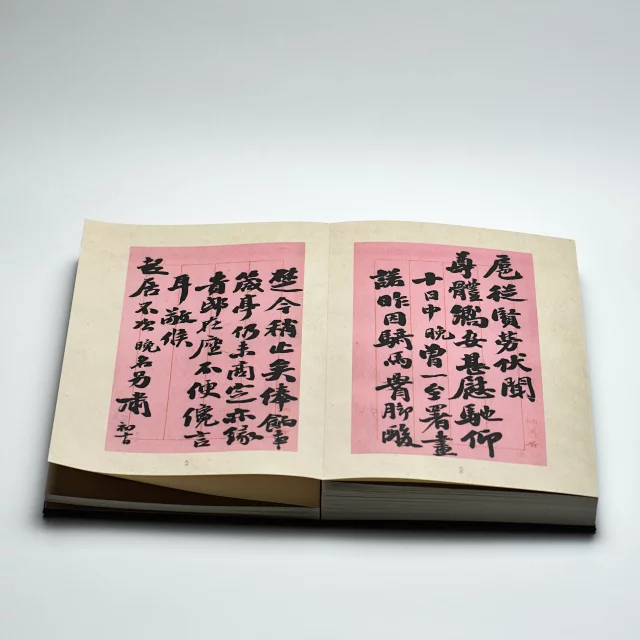 扈從賢勞伏聞
尊體獲安甚慰馳仰
十日中晚曾一至署畫
諾昨因騎馬實脚酸
楚今稍止矣俸飭事
筱亭仍未商定亦緣
首郎在座不便儳言
耳敬候
起居不次晚名另肅
初十